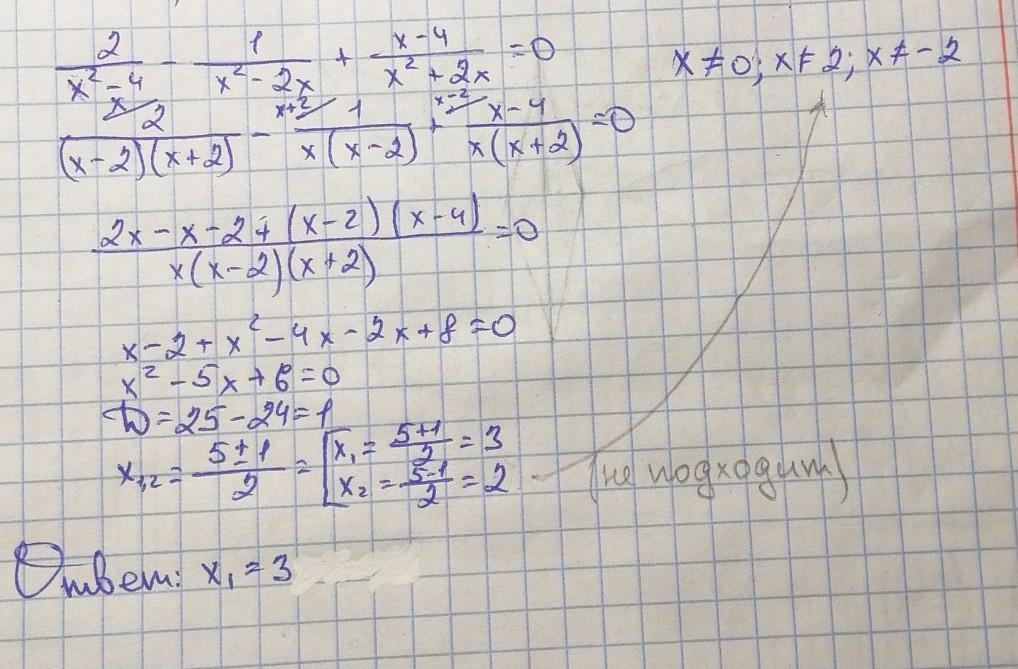 2/(x²-4) - 1/(x²-2x) + (x-4)/(x²+2x) = 0   x≠0; x≠2; x≠-2
x 2/((x-2)(x+2)) - x+2 1/(x(x-2)) + x-2 (x-4)/(x(x+2)) = 0
(2x-x-2+(x-2)(x-4))/(x(x-2)(x+2)) = 0
x-2+x²-4x-2x+8=0
x²-5x+6=0
D=25-24=1
x₁,₂ = (5±1)/2 = [x₁ = (5+1)/2 = 3
x₂ = (5-1)/2 = 2 (не подходит)
Ответ: x₁=3